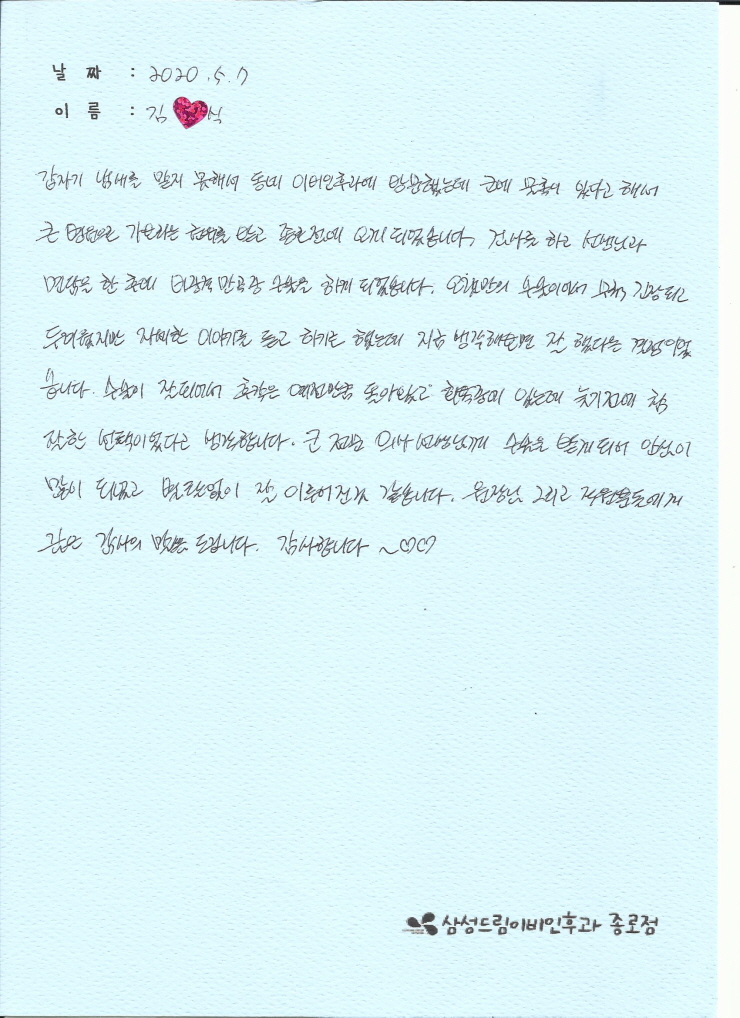 날 짜 : 2020.5.7
이 름 : 김 식
갑자기 냄새를 맡지 못해서 동네 이비인후과에 방문했는데 코에 물혹이 있다고 해서
큰 병원으로 가보라는 권유를 받고 종로점에 오게 되었습니다. 검사를 하고 선생님과
면담을 한 후에 비중격 만곡증 수술을 하게 되었습니다. 오랜만의 수술이여서 무척 긴장되고
두려웠지만 자세한 이야기를 듣고 하기로 했는데 지금 생각해보면 잘 했다는 결정이었
습니다. 수술이 잘되어서 후각은 예전만큼 돌아왔고 회복중에 있는데 늦기전에 참
잘한 선택이었다고 생각합니다. 큰 의사 선생님께 수술을 받게 되어 안심이
많이 되었고 별 탈없이 잘 이루어진것 같습니다. 원장님 그리고 직원분들에게
감사의 말씀을 드립니다. 감사합니다 ~♡♡
삼성드림이비인후과 종로점